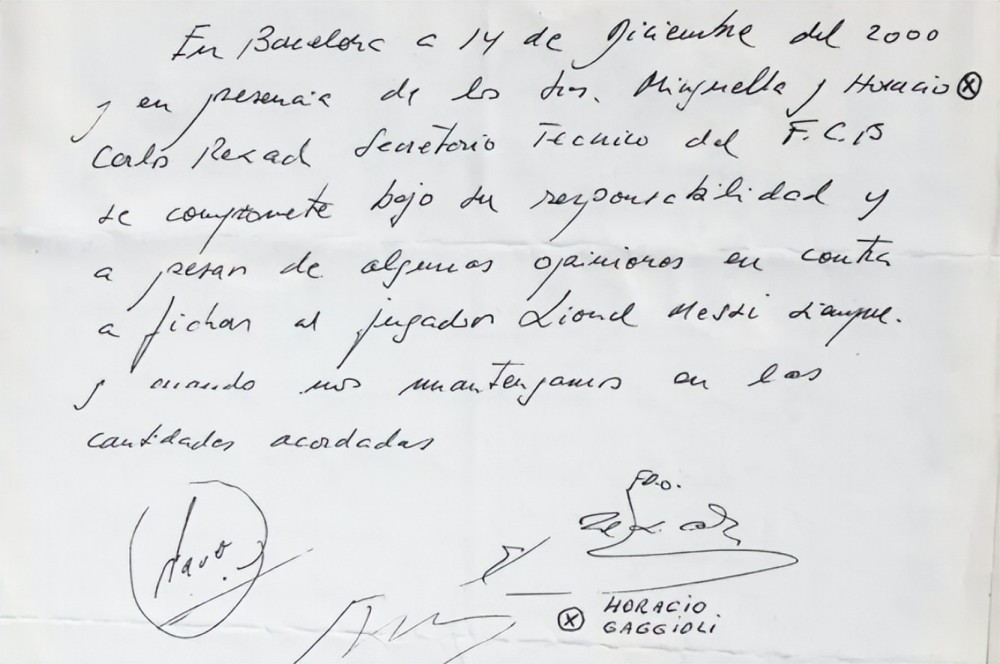 En Barcelona a 14 de Diciembre del 2000
y en presencia de los Srs. Minguella y Horacio ⓧ
Carlos Rexach Secretorio Tecnico del F.C.B
se compromete bajo su responsabilidad y
a pesar de algunas opiniones en contra
a fichar al jugador Lionel Messi siempre.
y cuando nos mantengamos en las
cantidades acordadas
FDO.
Rexach
ⓧ HORACIO
GAGGIOLI